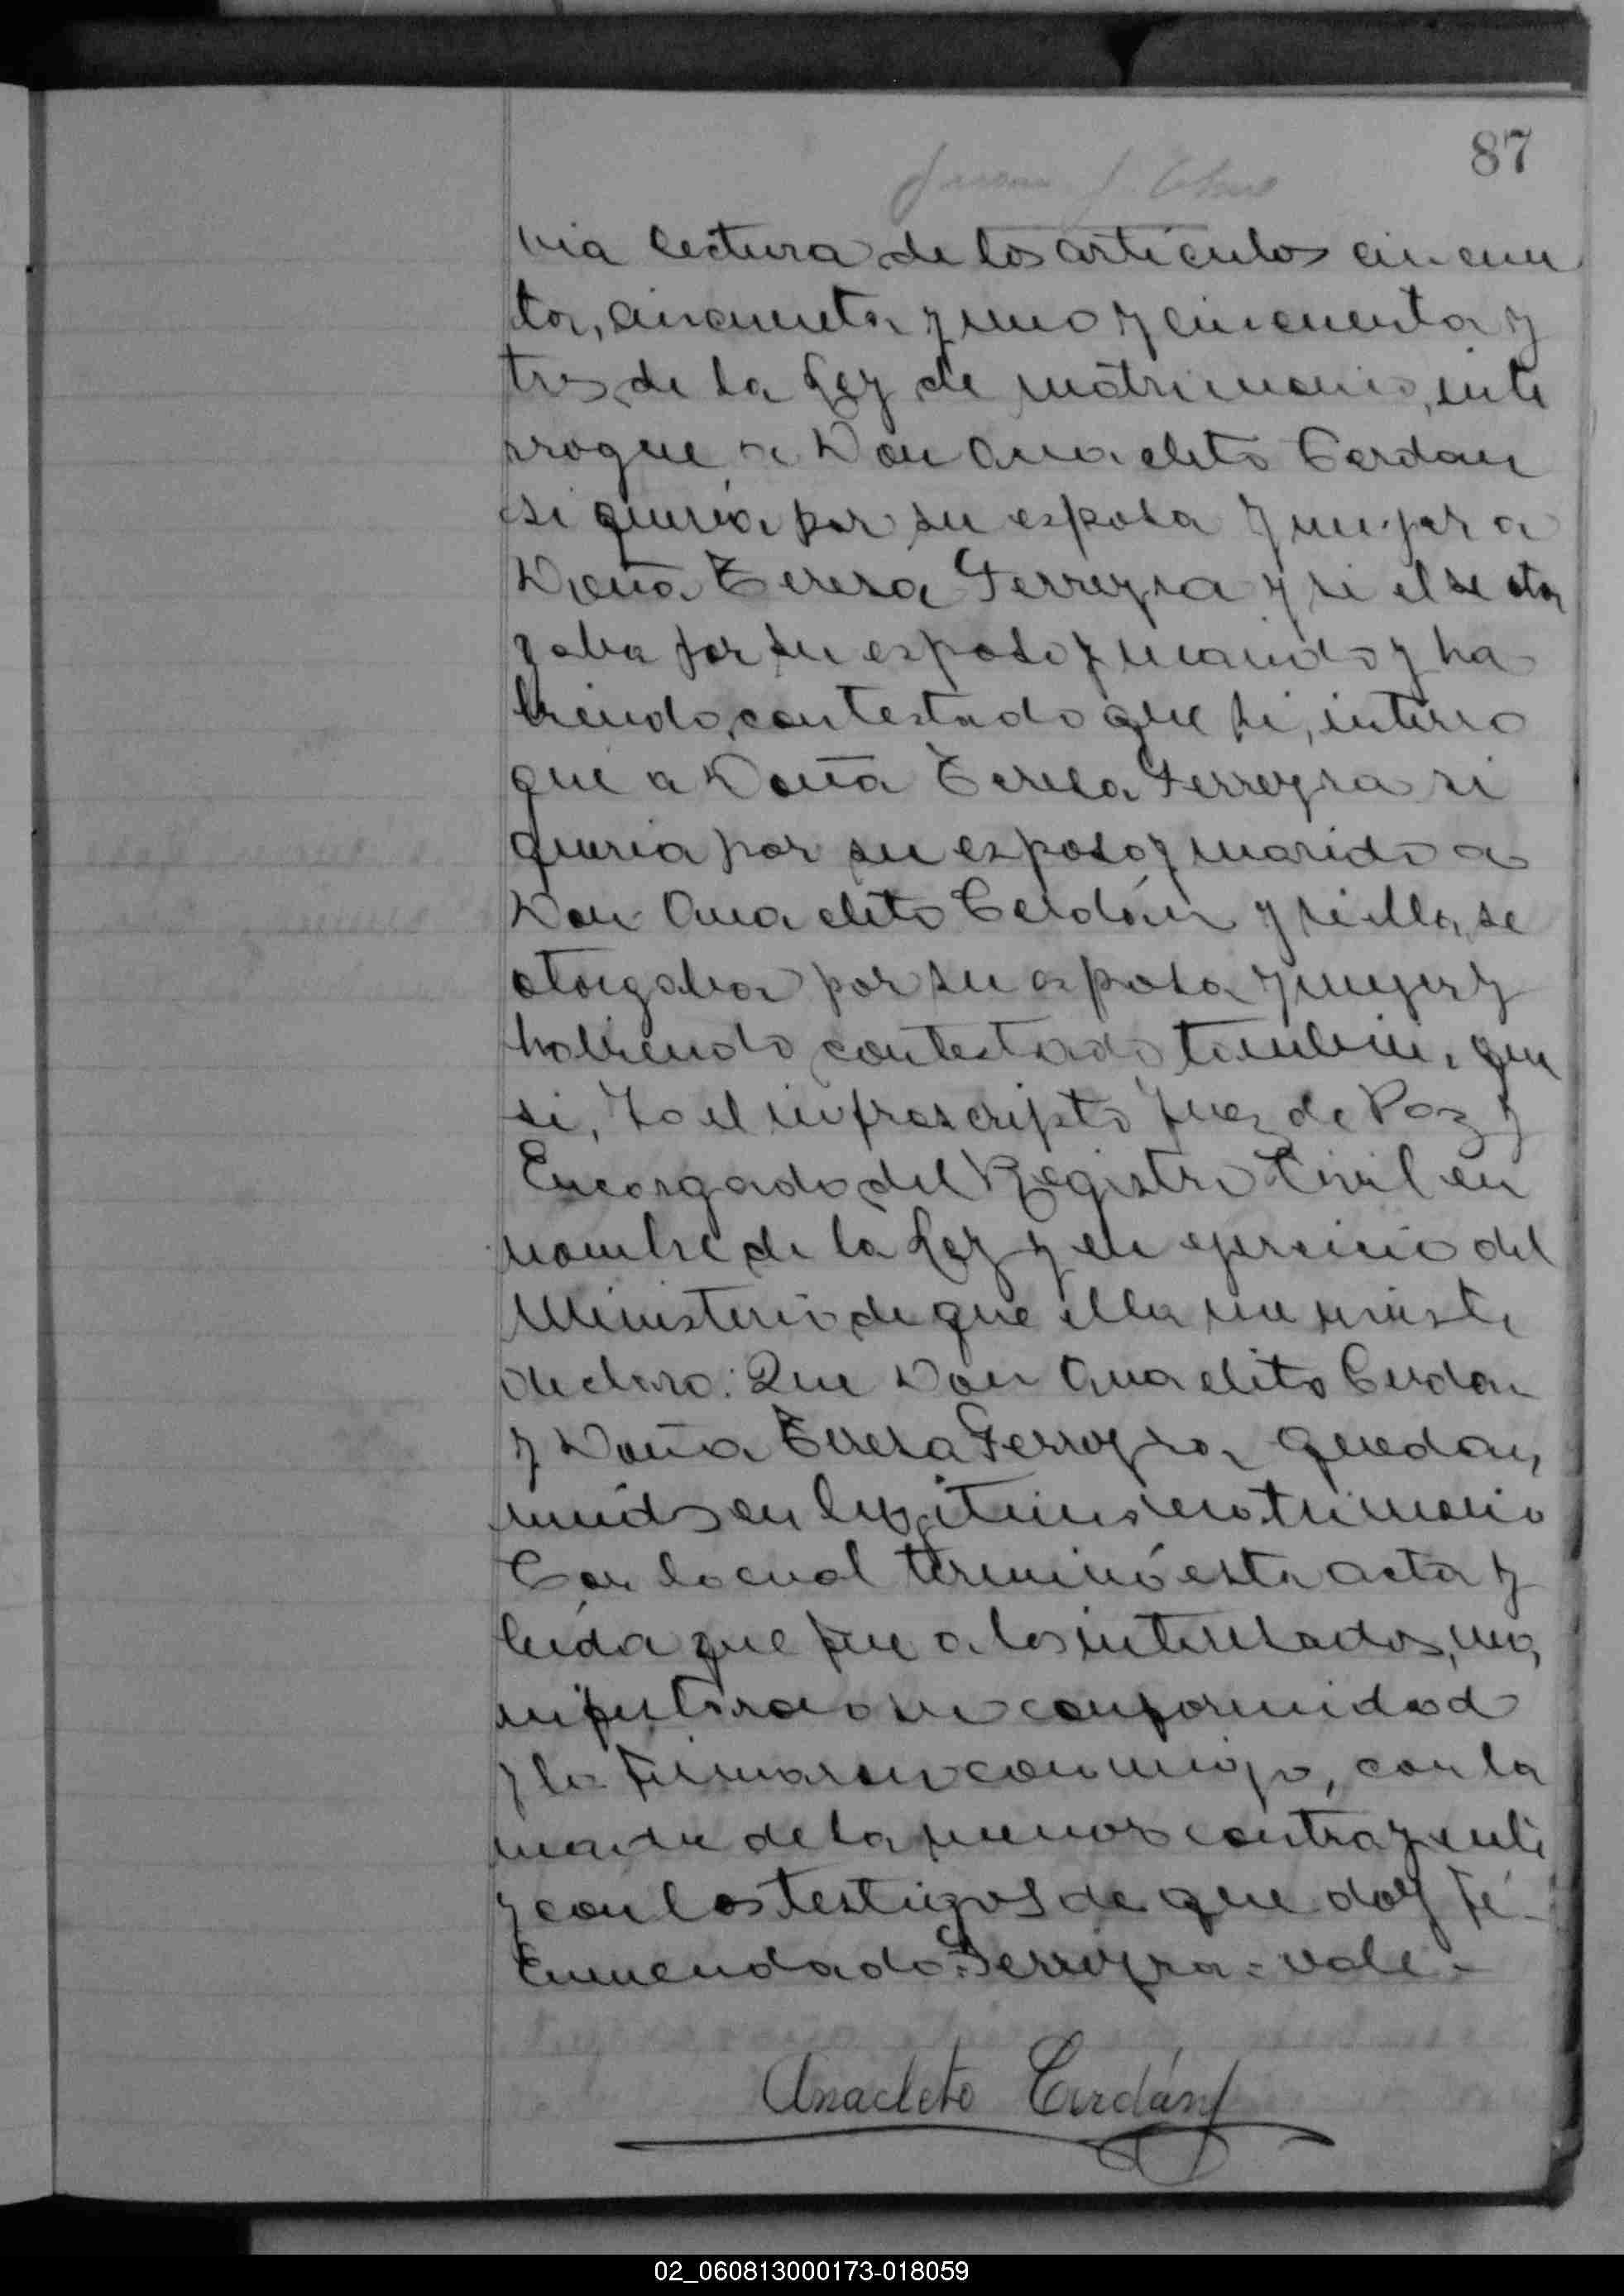 87
via lectura de los articulos cincuen
ta, cincuenta y uno y cincuenta y
tres de la Ley de matrimonio, inte
rrogue a Don Anacleto Cerdan
si queria por su esposa y mujer a
Doña Teresa Ferreyra y si el se otor
gaba por su esposo y marido y ha
biendo contestado que si, interro
gué a Doña Teresa Ferreyra si
queria por su esposo y marido a
Don Anacleto Cerdán y si ella se
otorgaba por su esposa y mujer y
habiendo contestado tambien, que
si, Yo el infrascripto Juez de Paz y
Encargado del Registro Civil en
nombre de la Ley y en ejercicio del
Ministerio de que ella me inviste
declaro: Que Don Anacleto Cerdan
y Doña Teresa Ferreyra quedan
unidos en legitimo matrimonio
Con lo cual terminó esta acta y
leida que fue a los interesados, ma
nifestaron su conformidad
y la firmaron conmigo, con la
madre de la menor contrayente
y con los testigos de que doy fé.
Enmendado: Ferreyra = vale.
Anacleto Cerdán
02_060813000173-018059